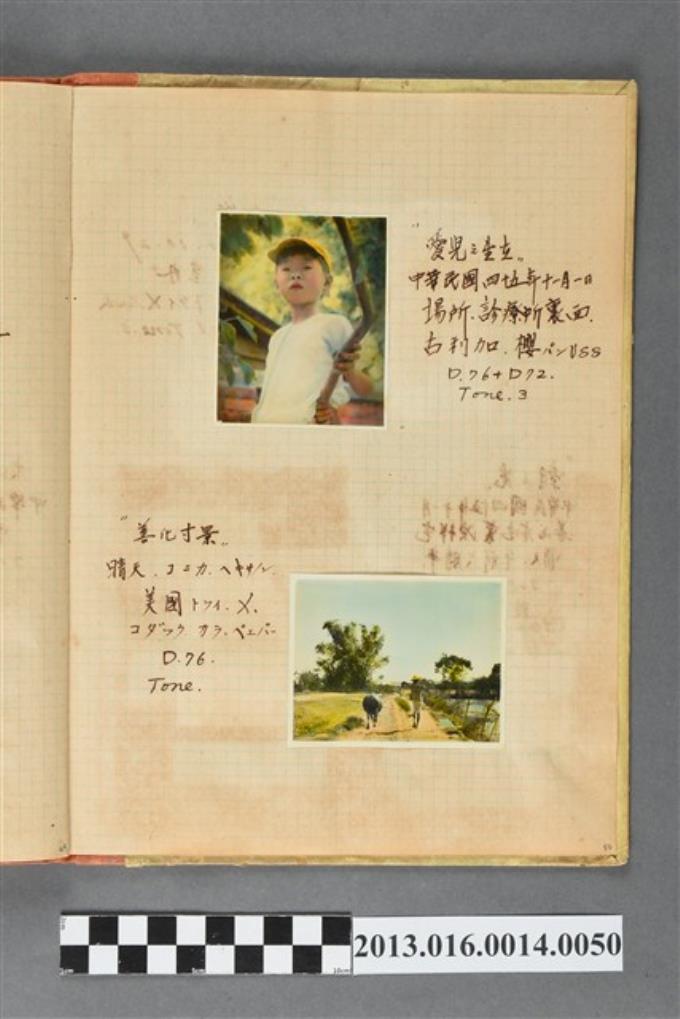 "愛児之奎立„
中華民國四十五年十一月一日
場所.診療所裏面.
古利加.櫻パンUSS
D.76+D72.
Tone.3
"善化寸景„
晴天.コニカ.ヘキサノン.
美國トライ.X.
コダック カラ.ペェパー
D.76.
Tone.
2013.016.0014.0050